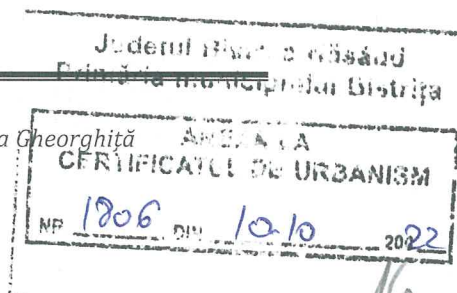 Județul Bistrița Năsăud
Primăria municipiului Bistrița
a Gheorghiță
ANEXA LA
CERTIFICATUL DE URBANISM
NR 1806 DIN 10-10 2022